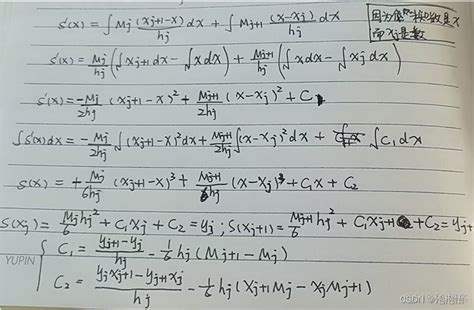 S'(x) = ∫ Mj (xj+1 - x)/hj dx + ∫ Mj+1 (x - xj)/hj dx
因为
而xj是数
s'(x) = Mj/hj (∫ xj+1 dx - ∫ x dx) + Mj+1/hj (∫ x dx - ∫ xj dx)
s'(x) = -Mj/2hj (xj+1 - x)² + Mj+1/2hj (x - xj)² + C1
∫ s'(x) dx = -Mj/2hj ∫ (xj+1 - x)² dx + Mj+1/2hj ∫ (x - xj)² dx + ∫ C1 dx
s(x) = + Mj/6hj (xj+1 - x)³ + Mj+1/6hj (x - xj)³ + C1x + C2
S(xj) = Mj/6 hj² + C1xj + C2 = yj ; S(xj+1) = Mj+1/6 hj² + C1xj+1 + C2 = yj+1
C1 = (yj+1 - yj)/hj - 1/6 hj (Mj+1 - Mj)
YUPIN
C2 = (yjxj+1 - yj+1xj)/hj - 1/6 hj (xj+1Mj - xjMj+1)
CSDN @抱抱悟